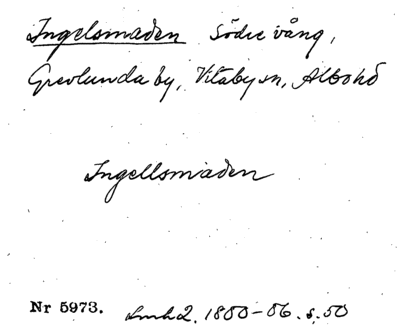 Ingelsmaden Södre vång,
Grevlunda by, Vitaby sn, Albo hd
Ingellsmaden
Nr 5973. Lmh2. 1800-06. s. 50